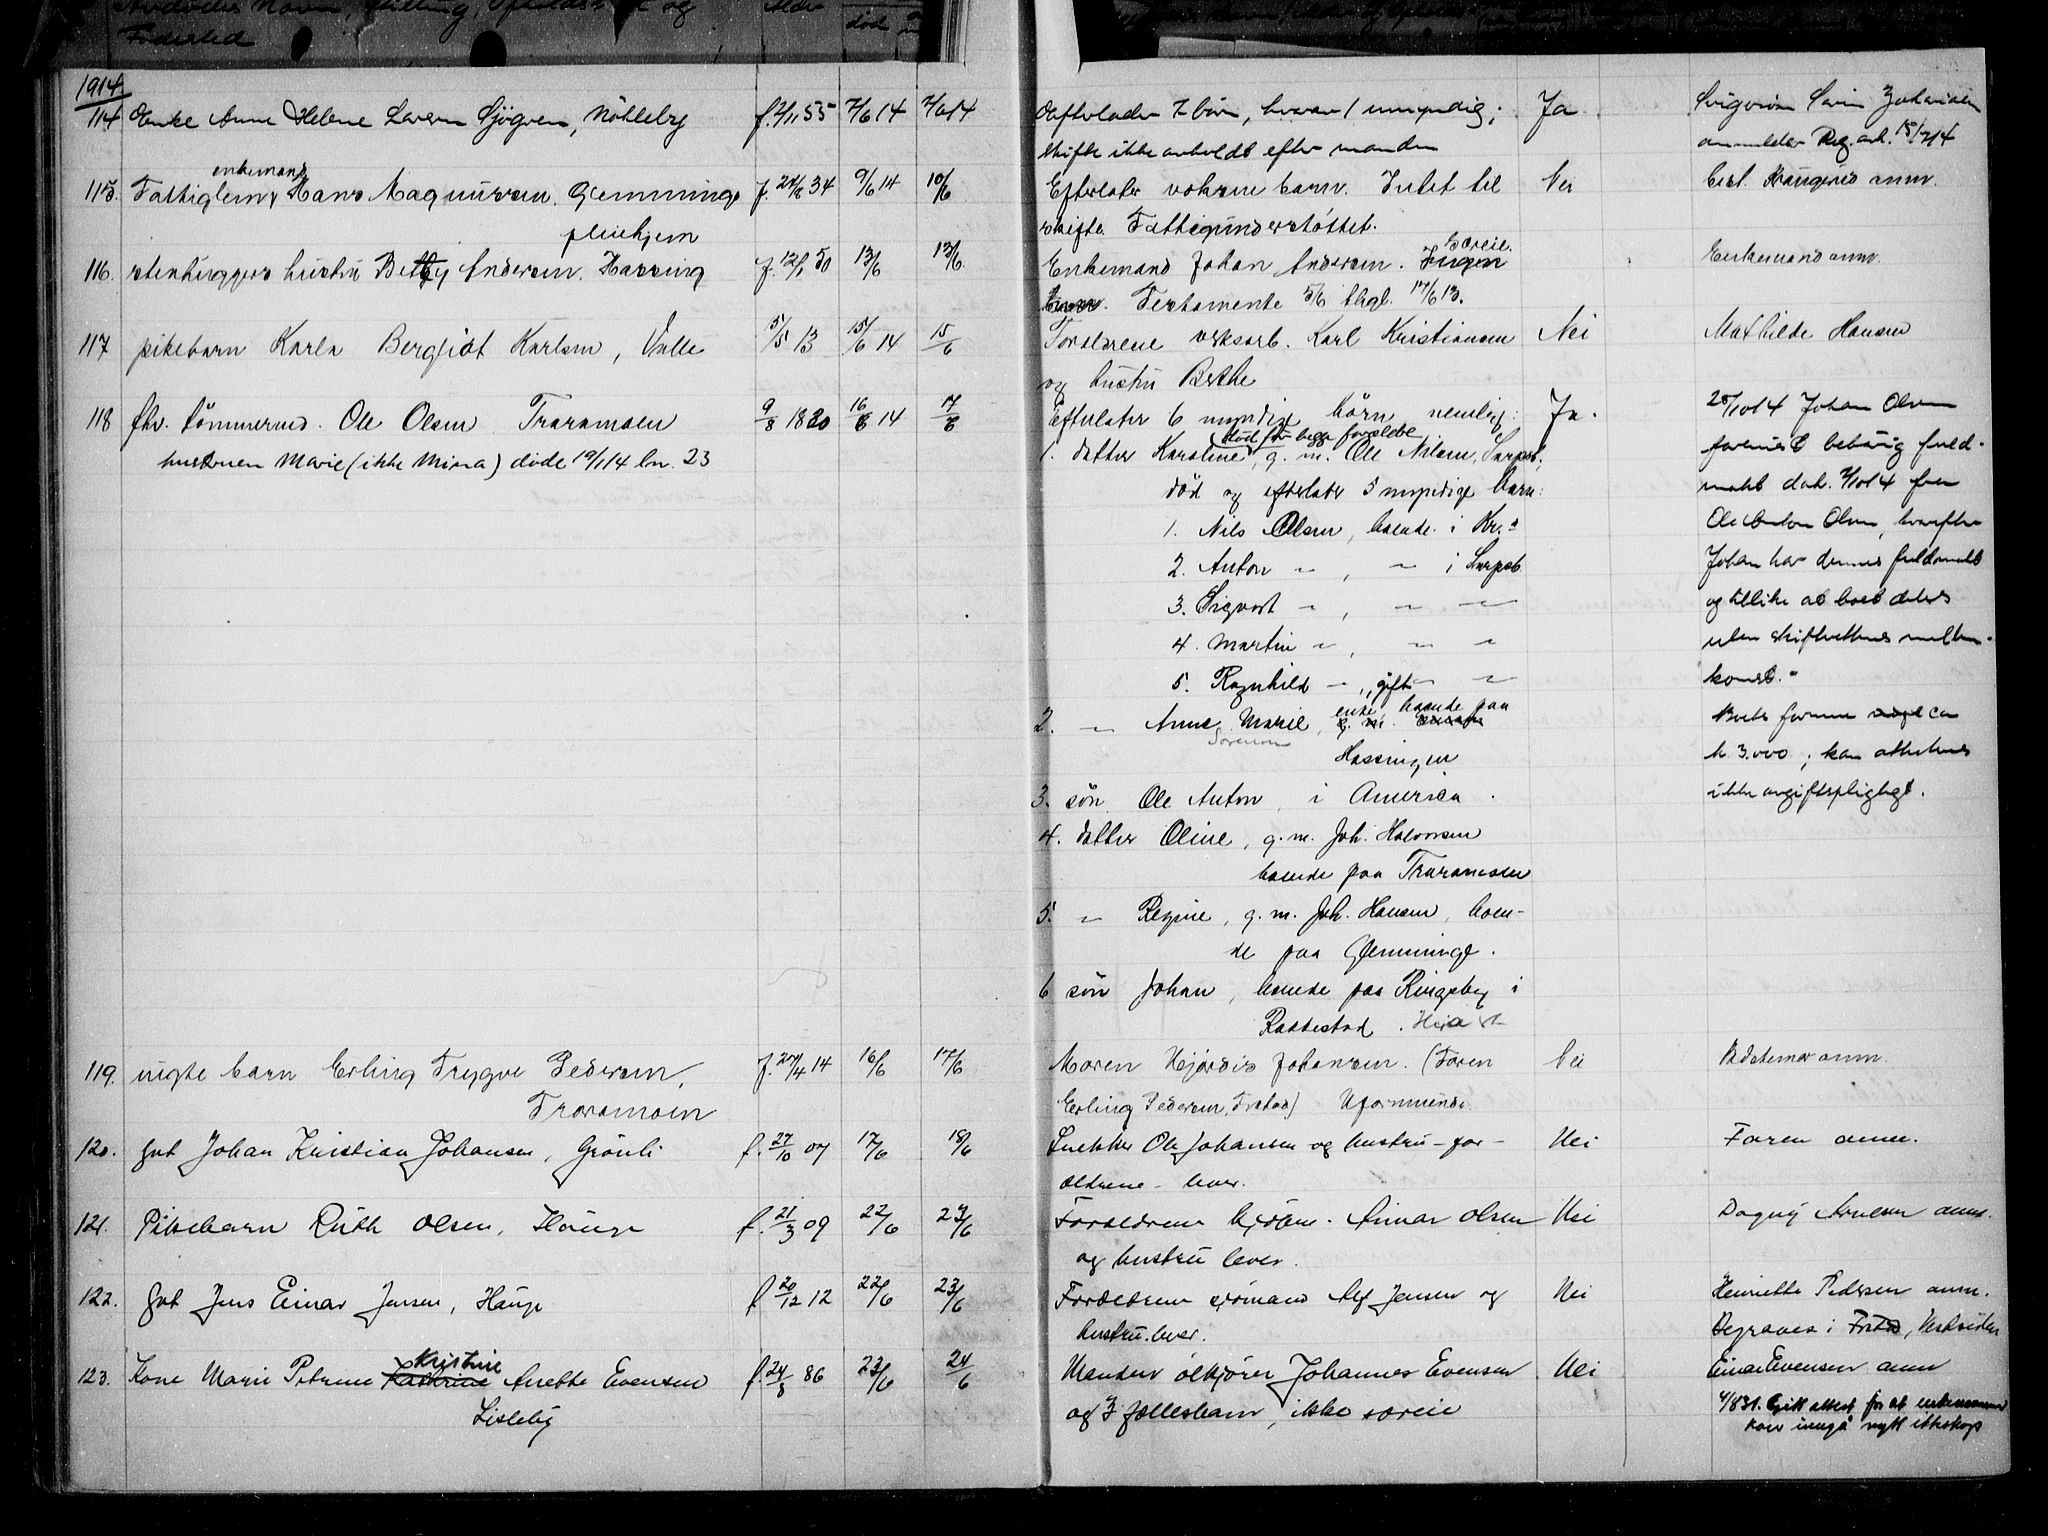 Avdødes Navn, Stilling, Opholdssted og Alder
Fødested død
1914
114 Enke Anne Helene Larsen Sjögren, Nökleby f. 4/11 55 7/6 14 7/6 14 Efterlader 7 börn, hvorav 1 umyndig; Ja Svigersön Johansen
skifte ikke avholdt efter manden anmelder Reg. ark. 15/7 14
enkemand
115. Fattiglem Hans Magnussen, Glemminge f. 24/2 34 9/6 14 10/6 Efterlater voksne barn. Intet til Nei Best. Krangerud anm.
pleiehjem skifte. Fattigunderstöttet.
særeie.
116. stenhuggers hustru Betty Andersen. Hassing f. 12/1 50 13/6 13/6 Enkemand Johan Andersen. Ingen Enkemand anm.
barn. Testamente 5/6 thgl. 17/6 13.
117 pikebarn Karla Bergljot Karlsen, Valle 5/5 13 15/6 14 15/6 Forældrene verksarb. Karl Kristiansen Nei Mathilde Hansen
og hustru Berthe
118 fhv. tömmermd. Ole Olsen Traramoen 9/8 1830 16/6 14 17/6 Efterlater 6 myndige börn nemlig: Ja. 28/10 14 Johan Olsen
hustruen Marie (ikke Mina) døde 19/1 14 ln. 23
død før begge forældre
1. datter Karoline, g. m. Ole Nilsen, Sarpsb., forevist behörig fuld-
död og efterlater 5 myndige barn: makt dat. 7/10 14 fra
1. Nils Olsen, boende i Kr.a Ole Anton Olsen, hvorefter
2. Anton " , " i Sarpsb. Johan har dennes fuldmakt
3. Sigvart " , " " og tillike at boet deles
4. Martin " , " " uten skifterettens mellem-
5. Ragnhild " , gift " " komst."
enke, boende paa
2. " Anne Marie, g. m. Boets formue ca
Sørensen
Hassingen kr 3.000; kan attesteres
3. sön Ole Anton, i America. ikke avgiftspligtigt.
4. datter Oline, g. m. Joh. Halvorsen
boende paa Traramoen
5. " Regine, g. m. Joh. Hansen, boen-
de paa Glemminge.
6 sön Johan, boende paa Ringsby i
Rakkestad.
119. uegte barn Erling Trygve Pedersen, f. 27/4 14 16/6 17/6 Moren Hjördis Johansen. (Faren Nei Bestemor anm.
Traramoen Erling Pedersen, Fr.stad) Uformuende.
120. gut Johan Kristian Johansen, Grönli f. 27/10 07 17/6 18/6 Snekker Ole Johansen og hustru - for- Nei Faren anm.
ældrene - lever.
121. Pikebarn Ruth Olsen, Hauge f. 21/3 09 22/6 23/6 Forældrene Einar Olsen Nei Dagny Arnesen anm.
og hustru lever.
122. gut Jens Einar Jensen, Hauge f. 20/12 12 22/6 23/6 Forældrene sjömand Alf Jensen og Nei Henriette Pedersen anm.
hustru lever. Begraves i Fr.stad, Vestsiden
Kristine
123. Kone Marie Petrine Kathrine Anette Evensen f. 24/8 86 23/6 24/6 Manden ölkjörer Johannes Evensen Nei Einar Evensen anm
Lisleby og 3 fællesbarn, ikke særeie 4/8 31. Gitt attest for at enkemannen
kan inngå nytt ekteskap